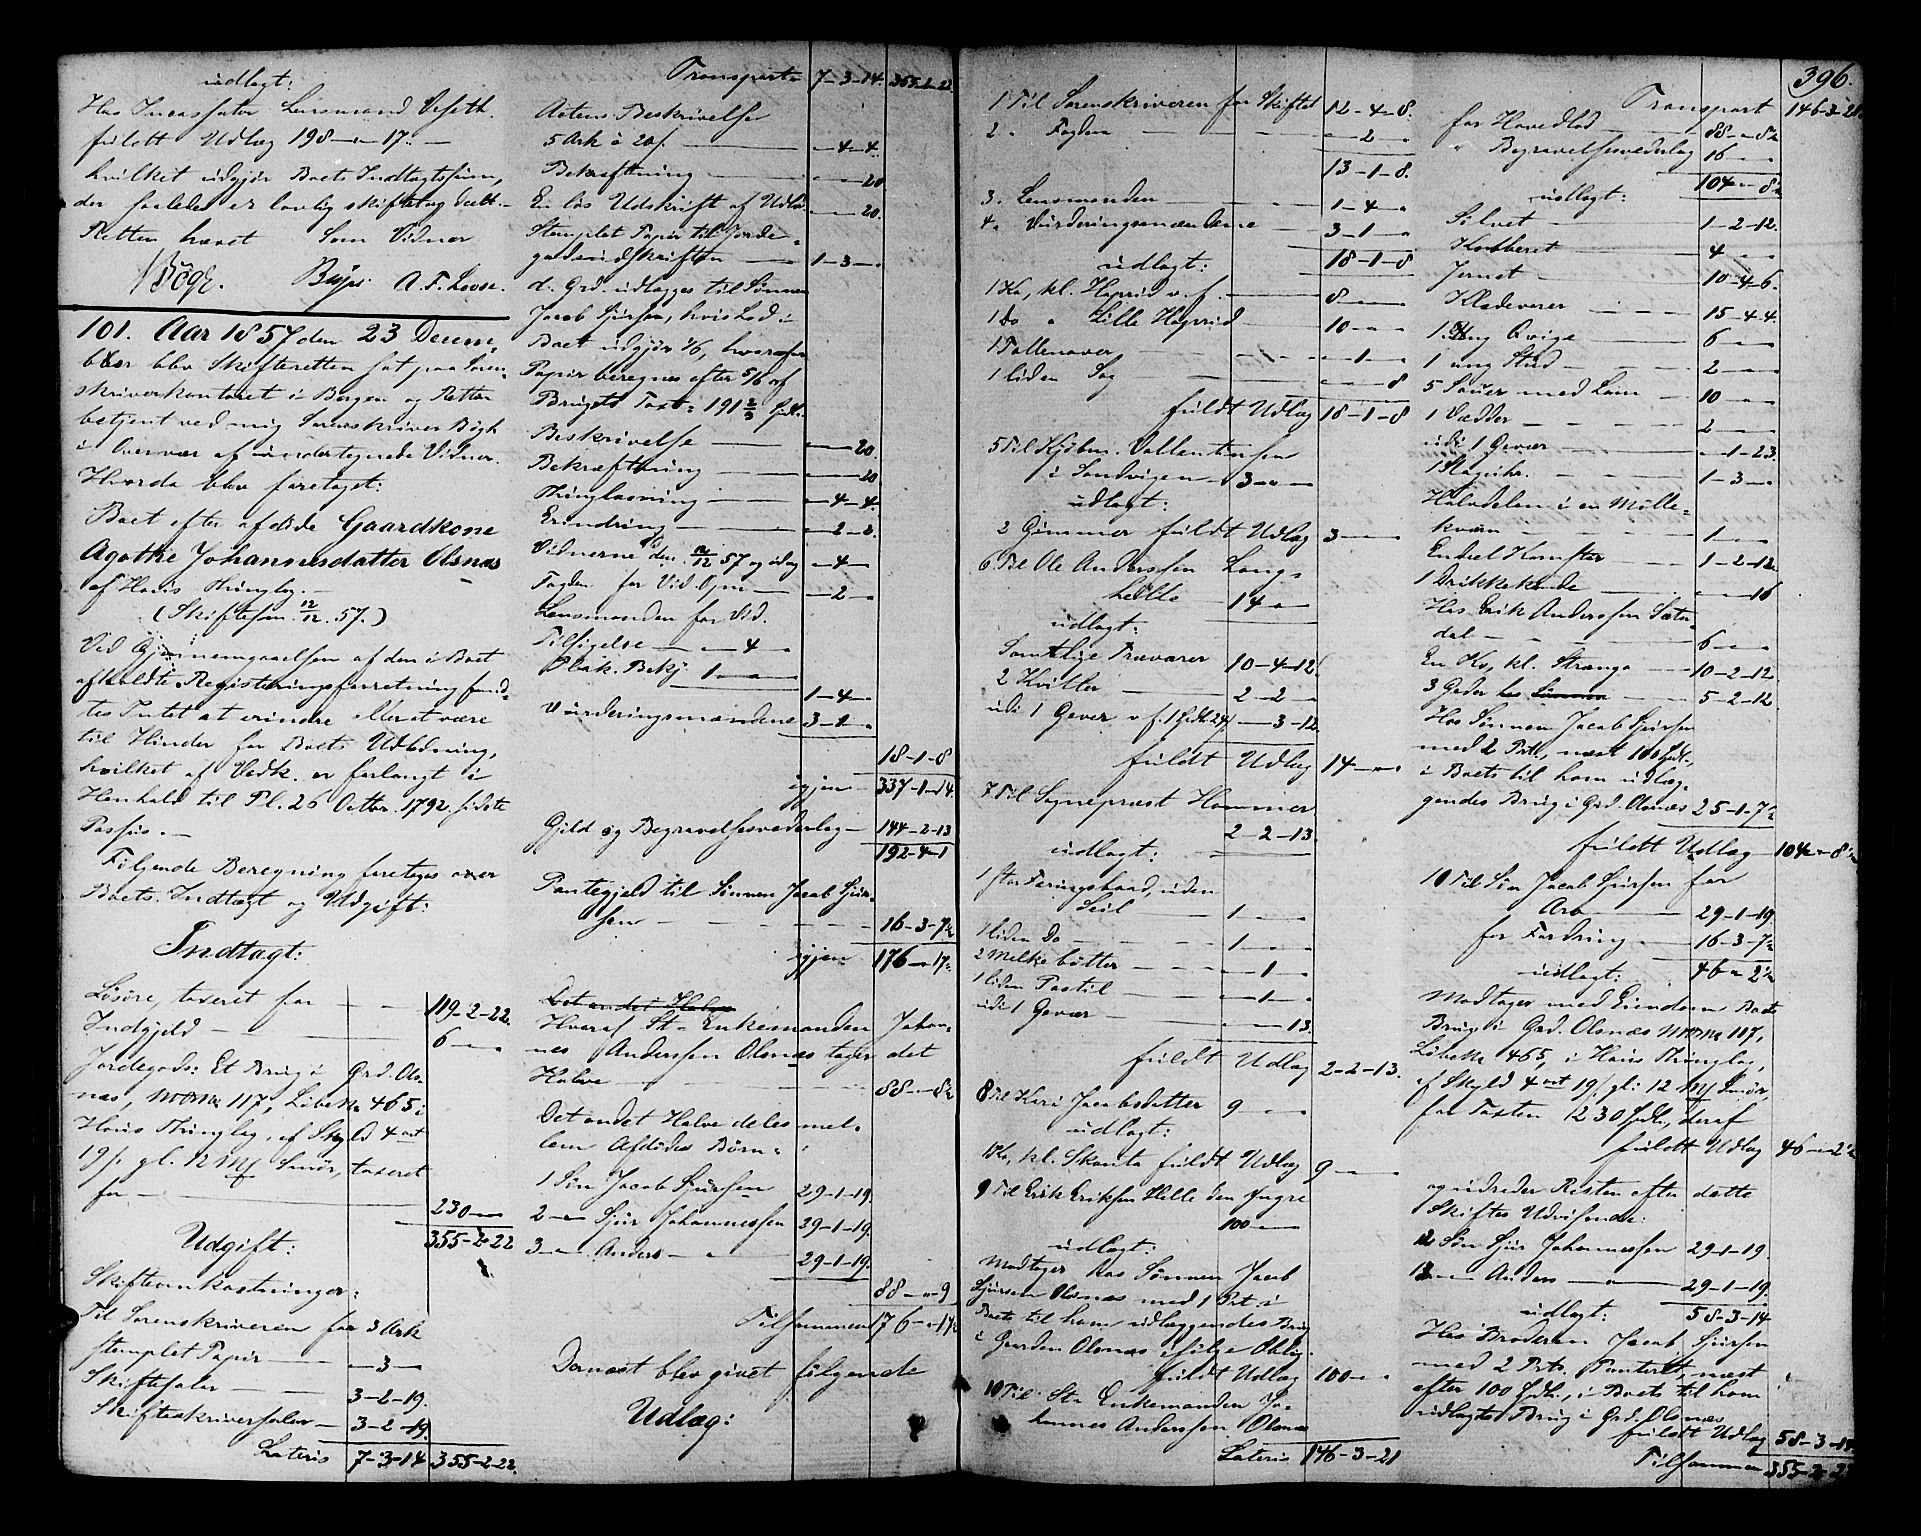 udlagt:
Hos Incassator Lensmand Veseth
fuldt Udlæg 198-"-17.
hvilket udgjør Boets Indtægtssum,
der saaledes er lovlig skiftet og delt.
Retten hævet Som Vidner
Bøgh. A. F. Loose.
101. Aar 1857 den 23 Decem-
ber blev Skifteretten sat paa Soren-
skriverkontoret i Bergen og Retten
betjent ved mig Sorenskriver Bøgh
i Overvær af undertegnede Vidner.
Hvorda blev foretaget:
Boet efter afdøde Gaardkone
Agathe Johannesdatter Olsnæs
af Houis Thinglag.
(Skiftesam. 12/12. 57.)
Ved Gjennemgaaelsen af den i Boet
afholdte Registreringsforretning fand-
tes Intet at erindre eller at være
til Hinder for Boets Udlodning,
hvilket af Vedk. er forlangt i
Henhold til Pl. 26 Octbr. 1792, sidste
Passus.
Følgende Beregning foretages over
Boets Indtægt og Udgift:
Indtægt:
Løsøre, taxeret for 119-2-22.
Indgjeld 6-"-"
Jordegods: Et Brug i Grd. Ols-
næs, M.No 117, Løbe No 465 i
Houis Thinglag, af Skyld 4 ort
19 s. gl. 12 Mk Smør, taxeret
for 230-"-"
355-2-22
Udgift:
Skifteomkostninger:
Til Sorenskriveren for 3 Ark
stemplet Papir "-3-"
Skiftesaler 3-2-19.
Skifteskriversaler 3-2-19.
Lateris 7-3-14 355-2-22.
Transport 7-3-14. 355-2-22.
Actens Beskrivelse
5 Ark à 20 s. "-4-4.
Bekræftning "-"-20
En løs Udskrift af Udlæg "-"-20.
Stemplet Papir til Jorde-
godsudskriften 1-3-"
d. Grd. udlægges til Sønnen
Jacob Sjursen, hvis Lod i
Boet udgjør 1/6, hvorefter
Papir beregnes efter 5/6 af
Brugets Taxt = 191 2/3 Spd.
Beskrivelse "-"-20.
Bekræftning "-"-20
Thinglæsning "-4-4.
Erindring "-2-2.
Vidnerne den 12/12 57 og idag "-4-"
Fogden for Vid. Gjen "-2-"
Lensmanden for Vid.
Tilsigelse "-4-"
Plak. Bekj. 1-"-"
1-4-"
Vurderingsmændene 3-1-"
18-1-8
igjen 337-1-14.
Gjeld og Begravelsesvederlag 144-2-13
192-4-1
Pantegjeld til Sønnen Jacob Sjur-
sen 16-3-7½
igjen 176-"-17½
Hvoraf St. Enkemanden Johan-
nes Anderssen Olsnæs tager det
Halve 88-"-8½
Det andet Halve deles mel-
lem Afdødes Børn:
1 Søn Jacob Sjursen 29-1-19.
2 " Sjur Johannessen 29-1-19.
3 " Anders " 29-1-19.
88-"-9
Tilsammen 176-"-17½
Dernæst blev givet følgende
Udlæg:
396.
1 Til Sorenskriveren for Skiftet 12-4-8.
2 " Fogden "-2-"
13-1-8.
3. Lensmanden 1-4-"
4. Vurderingsmændene 3-1-"
18-1-8
udlagt:
1 Ko, kl. Høprid v. f. 8-"-"
1 Do " Lille Høprid 10-"-"
1 Tollenover "-1-"
1 liden Sag "-"-8
fuldt Udlæg 18-1-8
5 Til Kjøbm. Vallentinsen
i Sandvigen 3-"-"
udlagt:
2 Gimmer fuldt Udlæg 3-"-"
6 Til Ole Anderssen Lang-
helle 14-"-"
udlagt:
Samtlige Trævarer 10-4-12
2 Kvitler 2-2-"
udi 1 Gever v. f. 1 Spd. 24 s. "-3-12.
fuldt Udlæg 14-"-"
7 Til Sognepræst Hammer
2-2-13.
udlagt:
1 stor Færingsbaad, uden
Seil 1-"-"
1 liden Do 1-"-"
2 Melkebøtter "-1-"
1 liden Postil "-1-"
udi 1 Gevær "-"-13.
fuldt Udlæg 2-2-13.
8 Til Kari Jacobsdatter 9-"-"
udlagt:
1 Ko, kl. Skauta fuldt Udlæg 9-"-"
9 Til Erik Eriksen Helle den Yngre
100-"-"
udlagt:
Modtager hos Sønnen Jacob
Sjursen Olsnæs med 1 Prt. i
Boets til ham udlæggendes Brug
i Gaarden Olsnæs ifølge Oblig.
fuldt Udlæg 100-"-"
10 Til St. Enkemanden Jo-
hannes Anderssen Olsnæs
Lateris 146-3-21
Transport 146-3-21.
for Hovedlod 88-"-8½
" Begravelsesvederlag 16-"-"
104-"-8½
udlagt:
Sølvet 1-2-12.
Kobberet 4-"-"
Jernet 10-4-6.
Klædevarer 15-4-4.
1 ung Qvige 6-"-"
1 ung Stud 2-"-"
5 Sauer med Lam 10-"-"
1 Vædder 2-"-"
udi 1 Gevær "-1-23.
1 Slaguhr 1-3-"
Halvdelen i en Mølle-
kværn 1-"-"
Endeel Kornster 1-2-12.
1 Drikkekande "-"-16
Hos Erik Anderssen Sæter-
dal 6-"-"
En Ko, kl. Stranga 10-2-12.
3 Geder 5-2-12
Hos Sønnen Jacob Sjursen
med 2 Prt., næst 100 Spd.,
i Boets til ham udlæg-
gendes Brug i Grd. Olsnæs 25-1-7½
fuldt Udlæg 104-"-8½
10 Til Søn Jacob Sjursen for
Arv 29-1-19.
for Fordring 16-3-7½
udlagt: 46-"-2½
Modtager med Eiendom Boets
Brug i Grd. Olsnæs M.No 117,
Løbe No 465, i Houis Thinglag,
af Skyld 4 ort 19 s. gl. 12 Mk Smør,
for Taxten 1230 Spd., deraf
fuldt Udlæg 46-"-2½
og udreder Resten efter dette
Skiftes Udvisende.
12 Søn Sjur Johannessen 29-1-19.
13 " Anders " 29-1-19.
udlagt: 58-3-14
Hos Broderen Jacob Sjursen
med 2 Prt. Panteret, næst
efter 100 Spd., i Boets til ham
udlagte Brug i Grd. Olsnæs
fuldt Udlæg 58-3-14.
Tilsammen 355-2-22